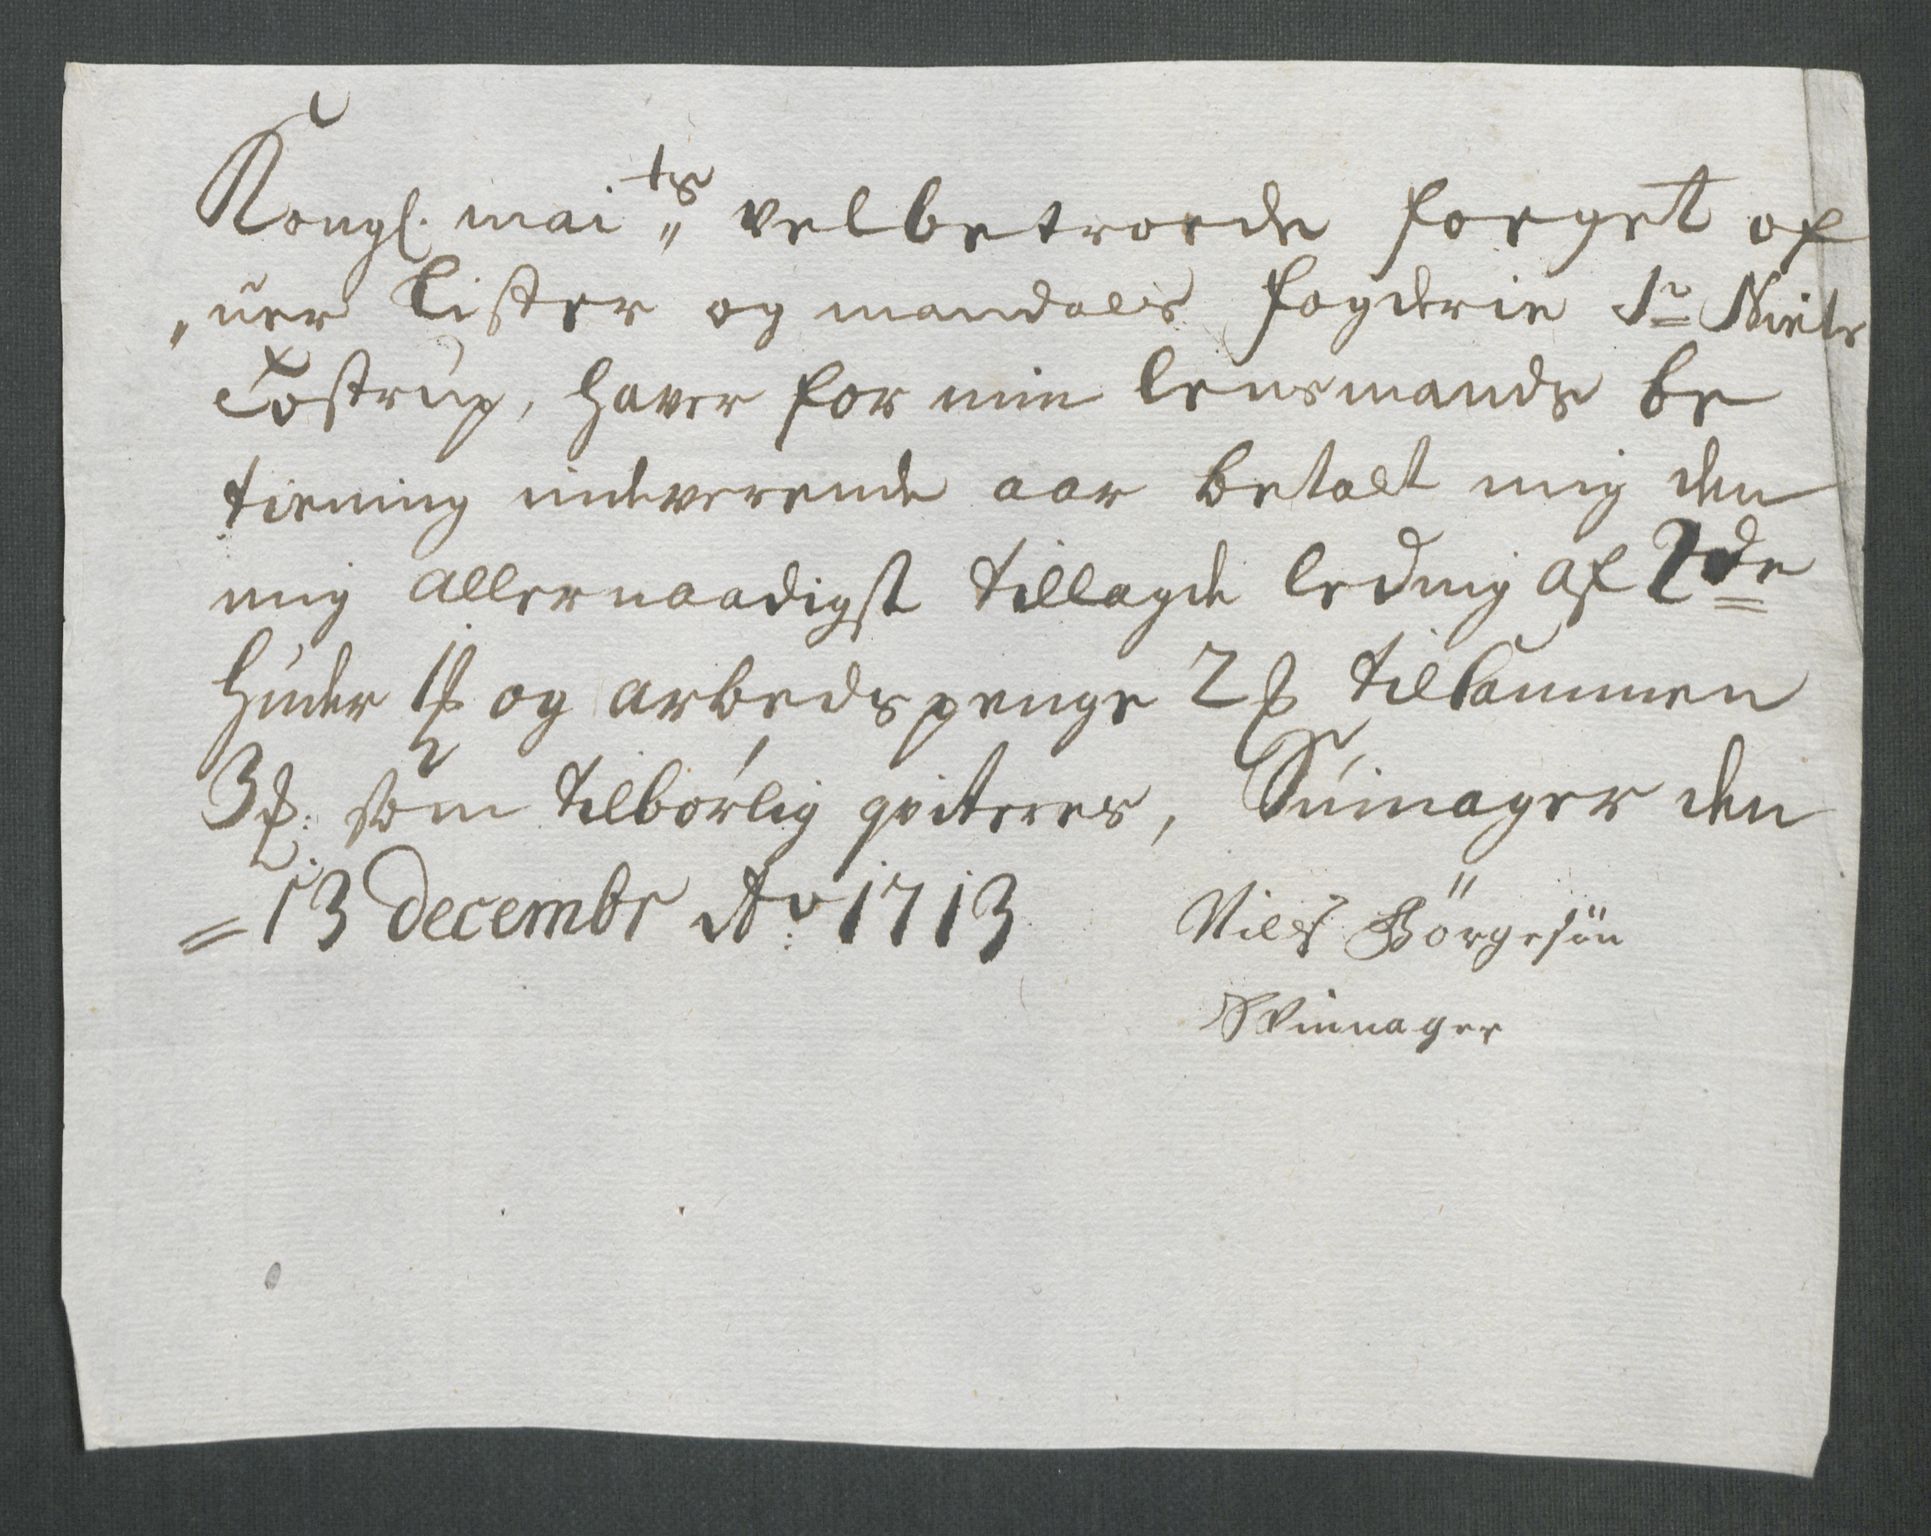 Kongl. mai<sup>ts</sup> velbetroede foeget of
„uer Lister og mandals fogderie Sr Niels
Tostrup, haver for min lensmands be
tiening indeverende aar betalt mig den
mig allernaadigst tillagde leding af 2de
huder 1 og arbedspenge 2 tilsammen
3 som tilbørlig qviteres, Suinager den
= 13 decembr Ao 1713 Niels Börgesön
Svinnager